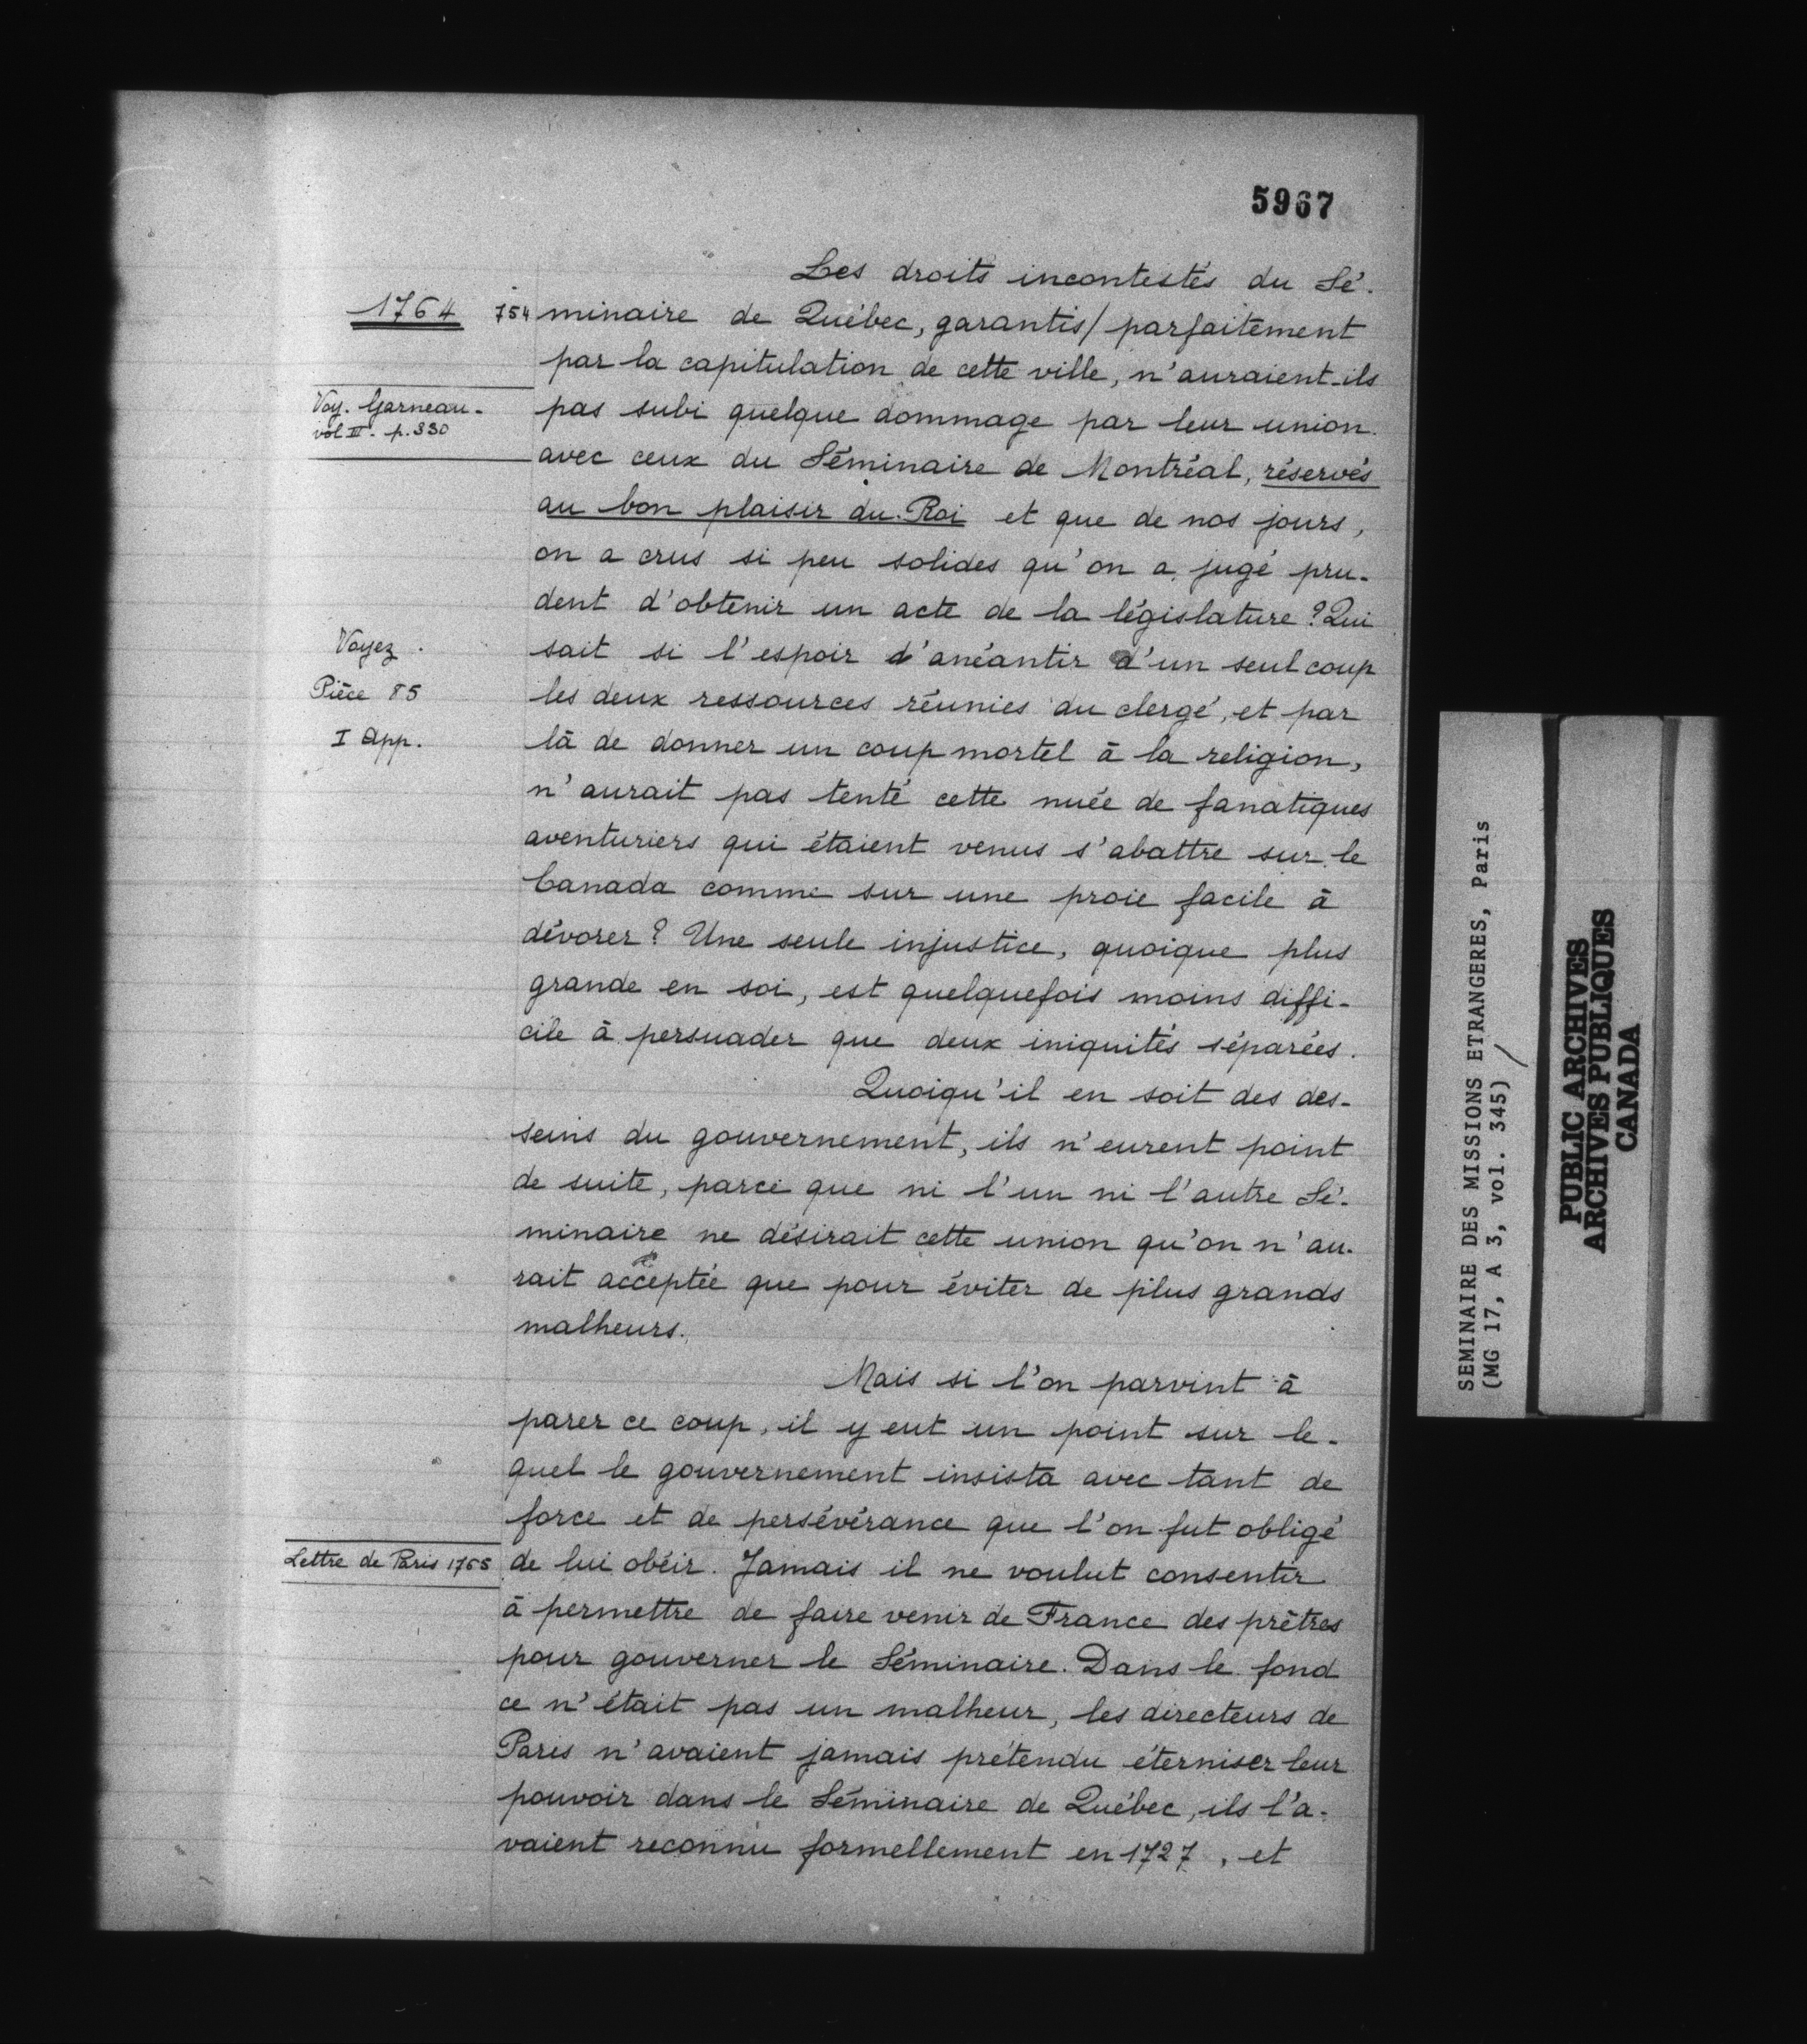 5967
Les droits incontestés du Sé-
1764
754 minaire de Québec, garantis/ parfaitement
par la capitulation de cette ville, n'auraient-ils
Voy. Garneau.
vol III. p. 330
pas subi quelque dommage par leur union
avec ceux du Séminaire de Montréal, réservés
au bon plaisir du Roi et que de nos jours,
on a crus si peu solides qu'on a jugé pru-
dent d'obtenir un acte de la législature ? Qui
Voyez
Pièce 85
I App.
sait si l'espoir d'anéantir d'un seul coup
les deux ressources réunies du clergé, et par
là de donner un coup mortel à la religion,
n'aurait pas tenté cette nuée de fanatiques
aventuriers qui étaient venus s'abattre sur le
Canada comme sur une proie facile à
dévorer ? Une seule injustice, quoique plus
grande en soi, est quelquefois moins diffi-
cile à persuader que deux iniquités séparées.
Quoiqu'il en soit des des-
seins du gouvernement, ils n'eurent point
de suite, parce que ni l'un ni l'autre Sé-
minaire ne désirait cette union qu'on n'au-
rait acceptée que pour éviter de plus grands
malheurs.
Mais si l'on parvint à
parer ce coup, il y eut un point sur le-
quel le gouvernement insista avec tant de
force et de persévérance que l'on fut obligé
Lettre de Paris 1765
de lui obéir. Jamais il ne voulut consentir
à permettre de faire venir de France des prêtres
pour gouverner le Séminaire. Dans le fond
ce n'était pas un malheur, les directeurs de
Paris n'avaient jamais prétendu éterniser leur
pouvoir dans le Séminaire de Québec, ils l'a-
vaient reconnu formellement en 1727, et
SEMINAIRE DES MISSIONS ETRANGERES, Paris
(MG 17, A 3, vol. 345) /
PUBLIC ARCHIVES
ARCHIVES PUBLIQUES
CANADA